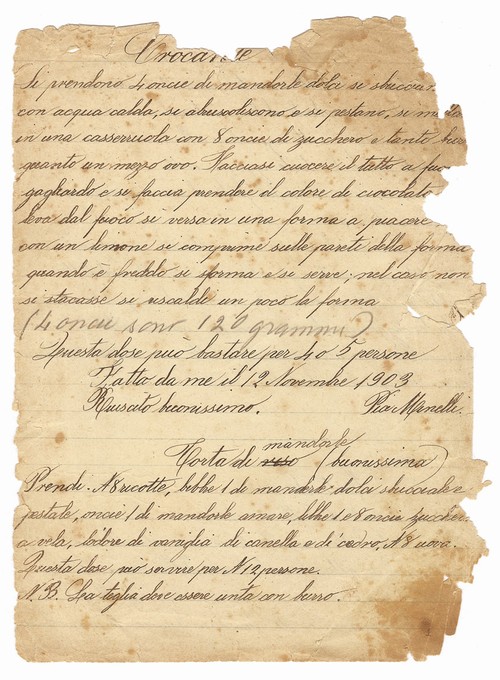 Croca
Si prendono 4 oncie di mandorle dolci si sbuccia
con acqua calda, si abruscoliscono e si pestano, si
in una casserruola con 8 oncie di zucchero e tanto
quanto un mezzo ovo. Facciasi cuocere il tutto a
gagliardo e si faccia prendere il colore di cioccolat
leva dal fuoco si versa in una forma a piacere
con un limone si comprime sulle pareti della forma
quando è freddo si sforma e si serve; nel caso non
si stacasse si riscalde un poco la forma
(4 oncie sono 120 grammi)
Questa dose può bastare per 4 o 5 persone
Fatto da me il 12 Novembre 1903
Riuscito buonissimo. Pia
mandorle
Torta di buonissima)
Prendi. N 8 ricotte, libbre 1 di mandorle dolci sbucciate
pestate, oncie 1 di mandorle amare, libbre 1 e 8 oncie zuccher
a vela, l'odore di vaniglia di canella e di cedro, N 8 uova.
Questa dose può servire per N 12 persone.
N.B. La teglia dove essere unta con burro.